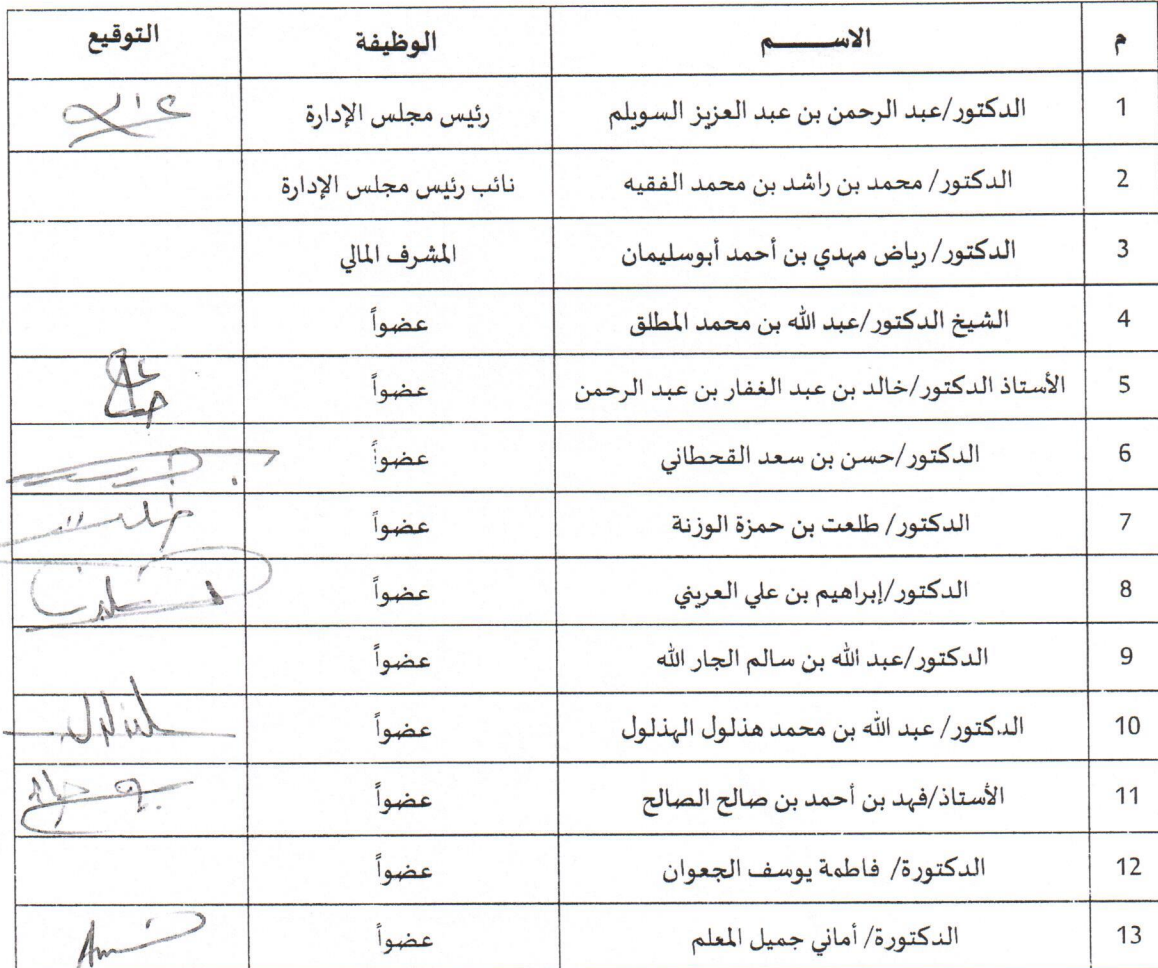 م الاســـــم الوظيفة التوقيع
1 الدكتور/عبد الرحمن بن عبد العزيز السويلم رئيس مجلس الإدارة
2 الدكتور/ محمد بن راشد بن محمد الفقيه نائب رئيس مجلس الإدارة
3 الدكتور/ رياض مهدي بن أحمد أبوسليمان المشرف المالي
4 الشيخ الدكتور/عبد الله بن محمد المطلق عضواً
5 الأستاذ الدكتور/خالد بن عبد الغفار بن عبد الرحمن عضواً
6 الدكتور/حسن بن سعد القحطاني عضواً
7 الدكتور/ طلعت بن حمزة الوزنة عضواً
8 الدكتور/إبراهيم بن علي العريني عضواً
9 الدكتور/عبد الله بن سالم الجار الله عضواً
10 الدكتور/ عبد الله بن محمد هذلول الهذلول عضواً
11 الأستاذ/فهد بن أحمد بن صالح الصالح عضواً
12 الدكتورة/ فاطمة يوسف الجعوان عضواً
13 الدكتورة/ أماني جميل المعلم عضواً